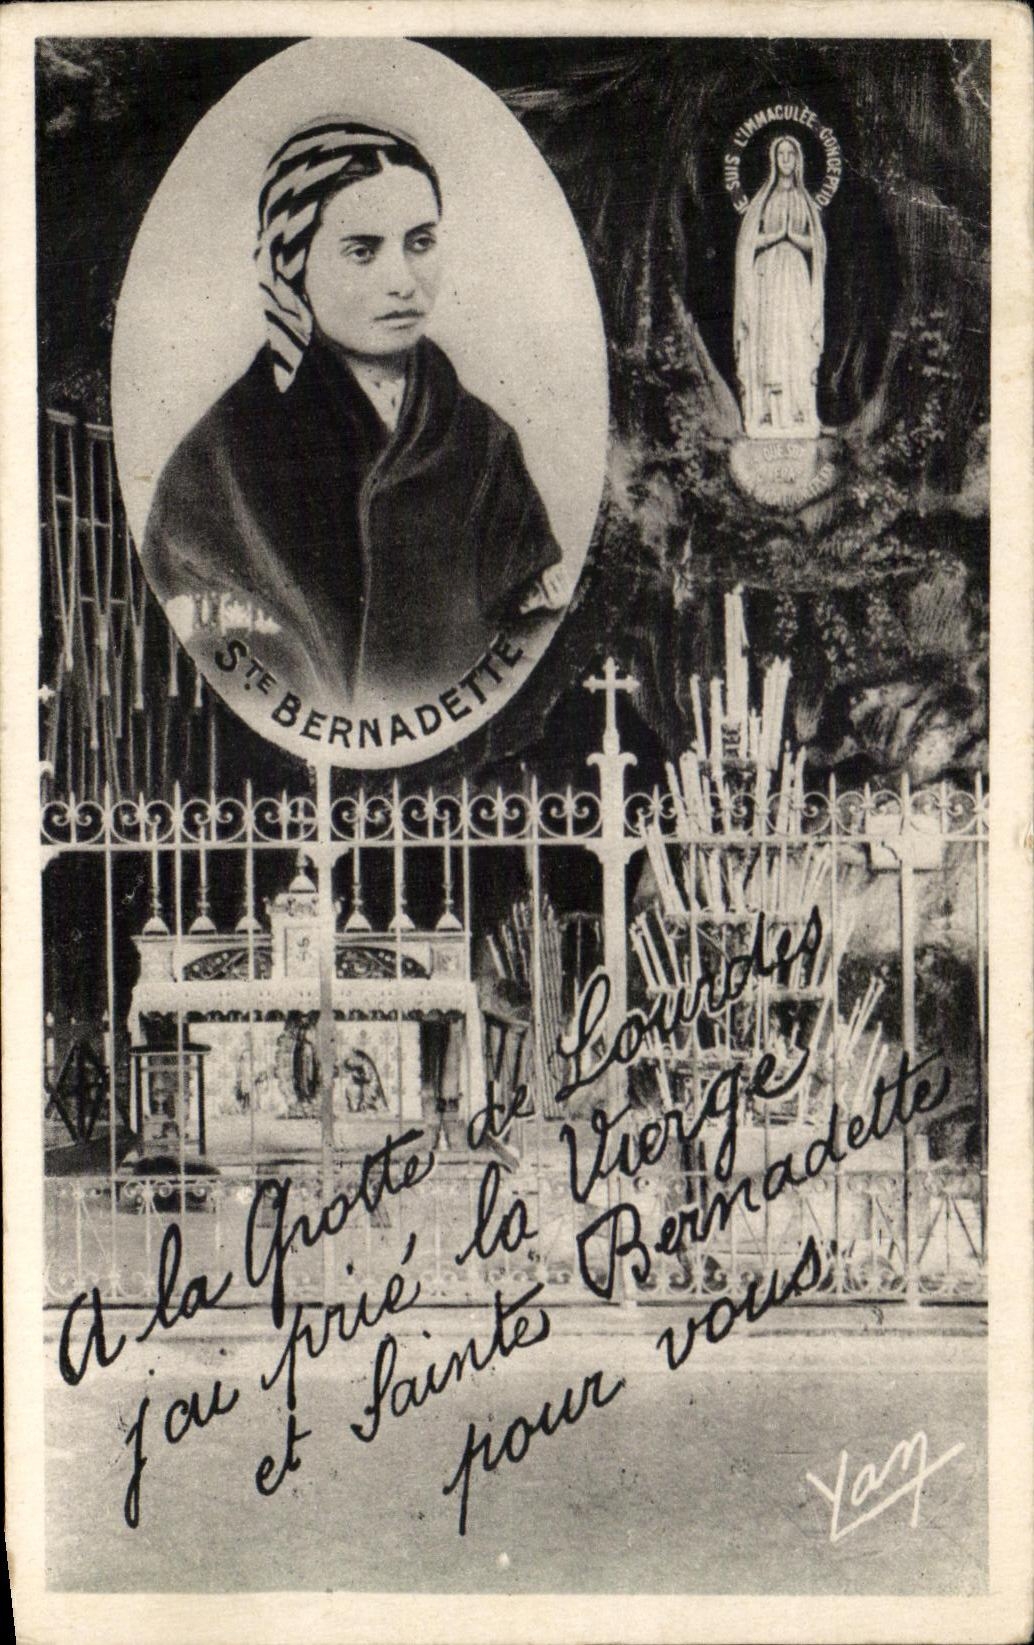 JE SUIS L'IMMACULÉE CONCEPTION
QUE SOY
ERA
STE BERNADETTE
A la Grotte de Lourdes
j'ai prié la Vierge
et Sainte Bernadette
pour vous
Yan